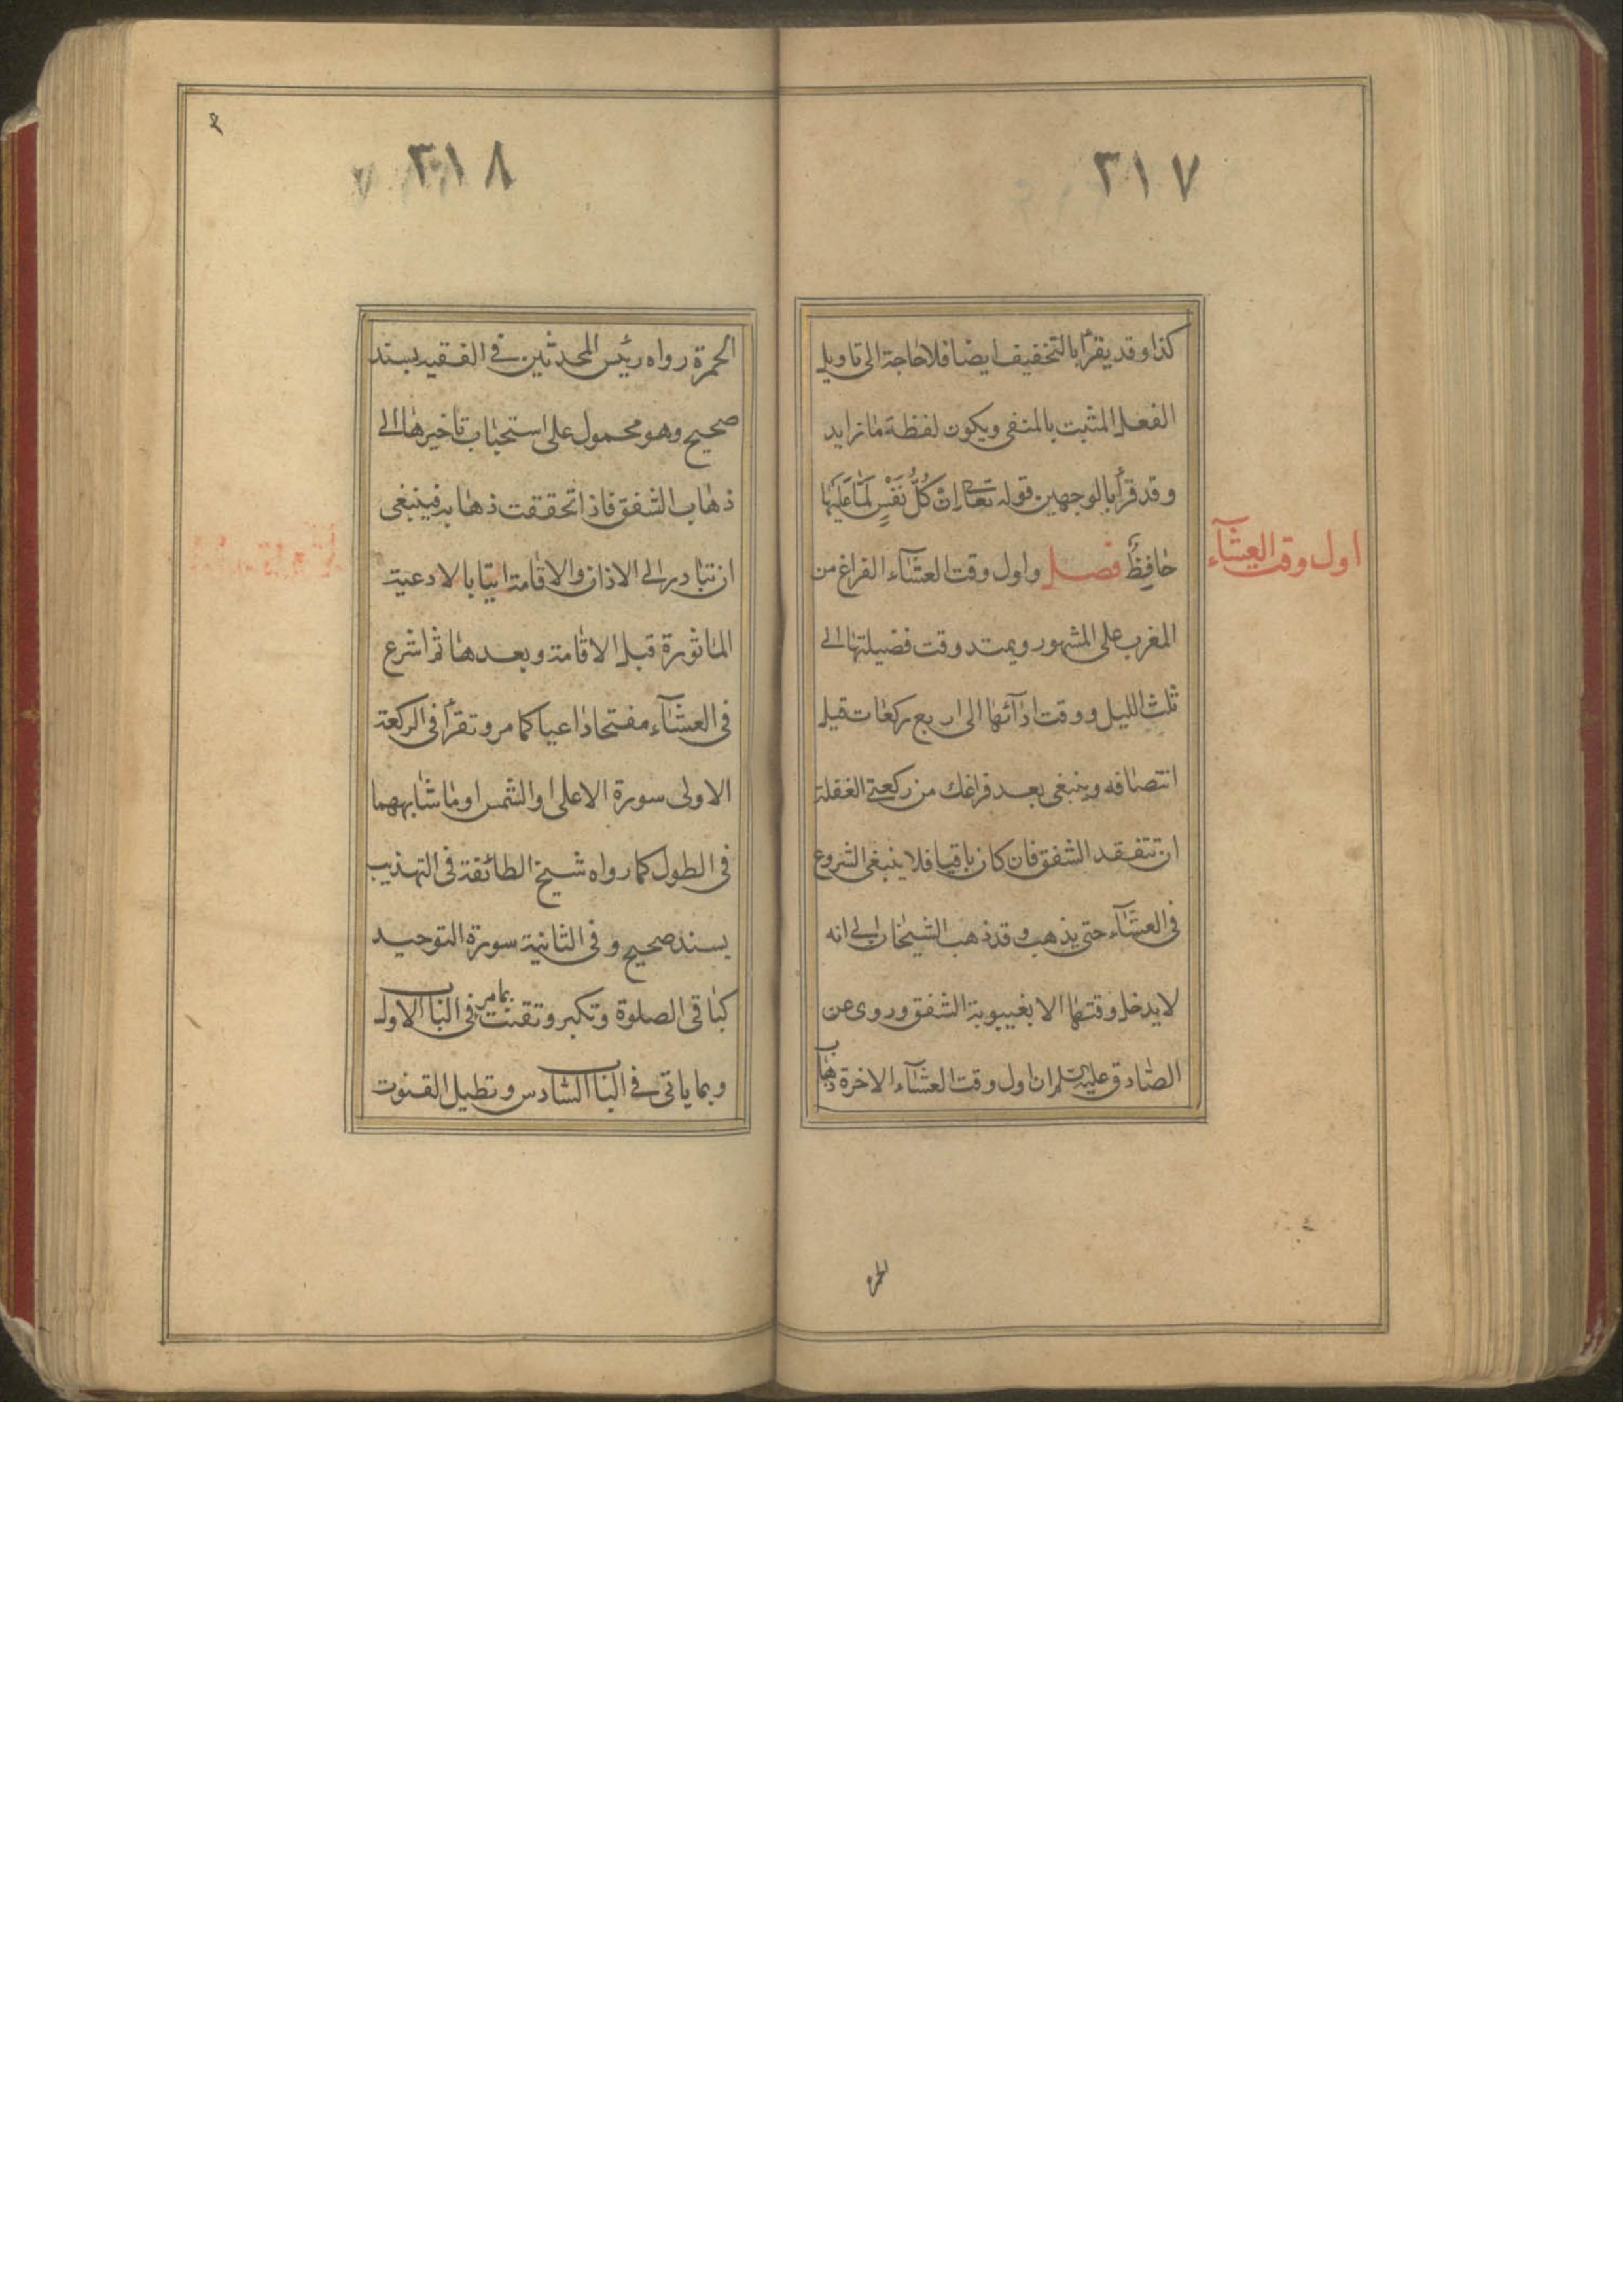 ٣١٧
كذا وقد يقرأ بالتخفيف ايضا فلا حاجة الى تاويل
الفعل المثبت بالمنفى ويكون لفظة ما زايد
وقد قرأ بالوجهين قوله تعالى اِنْ كُلُّ نَفْسٍ لَمّا عَلَيْها
حافِظٌ فصل واول وقت العشآء الفراغ من
اول وقت العشآء
المغرب على المشهور ويمتد وقت فضيلتها الى
ثلث الليل ووقت ادآئها الى اربع ركعات قبل
انتصافه وينبغى بعد فراغك من ركعتى الغفلة
ان تتفقد الشفق فان كان باقيا فلا ينبغى الشروع
فى العشآء حتى يذهب وقد ذهب الشيخان الى انه
لا يدخل وقتها الا بغيبوبة الشفق وروى عن
الصادق عليه السلم ان اول وقت العشآء الاخرة ذهاب
الحمرة
٣١٨
الحمرة رواه رئيس المحدثين فى الفقيه بسند
صحيح وهو محمول على استحباب تاخيرها الى
ذهاب الشفق فاذا تحققت ذهابه فينبغى
ان تبادر الى الاذان والاقامة اتيا بالادعية
الماثورة قبل الاقامة وبعدها ثم اشرع
فى العشآء مفتتحا داعيا كما مر وتقرأ فى الركعة
الاولى سورة الاعلى او الشمس او ما شابههما
فى الطول كما رواه شيخ الطائفة فى التهذيب
بسند صحيح وفى الثانية سورة التوحيد
كباقى الصلوة وتكبر وتقنت بما مر فى الباب الاول
وبما ياتى فى الباب السادس وتطيل القنوت